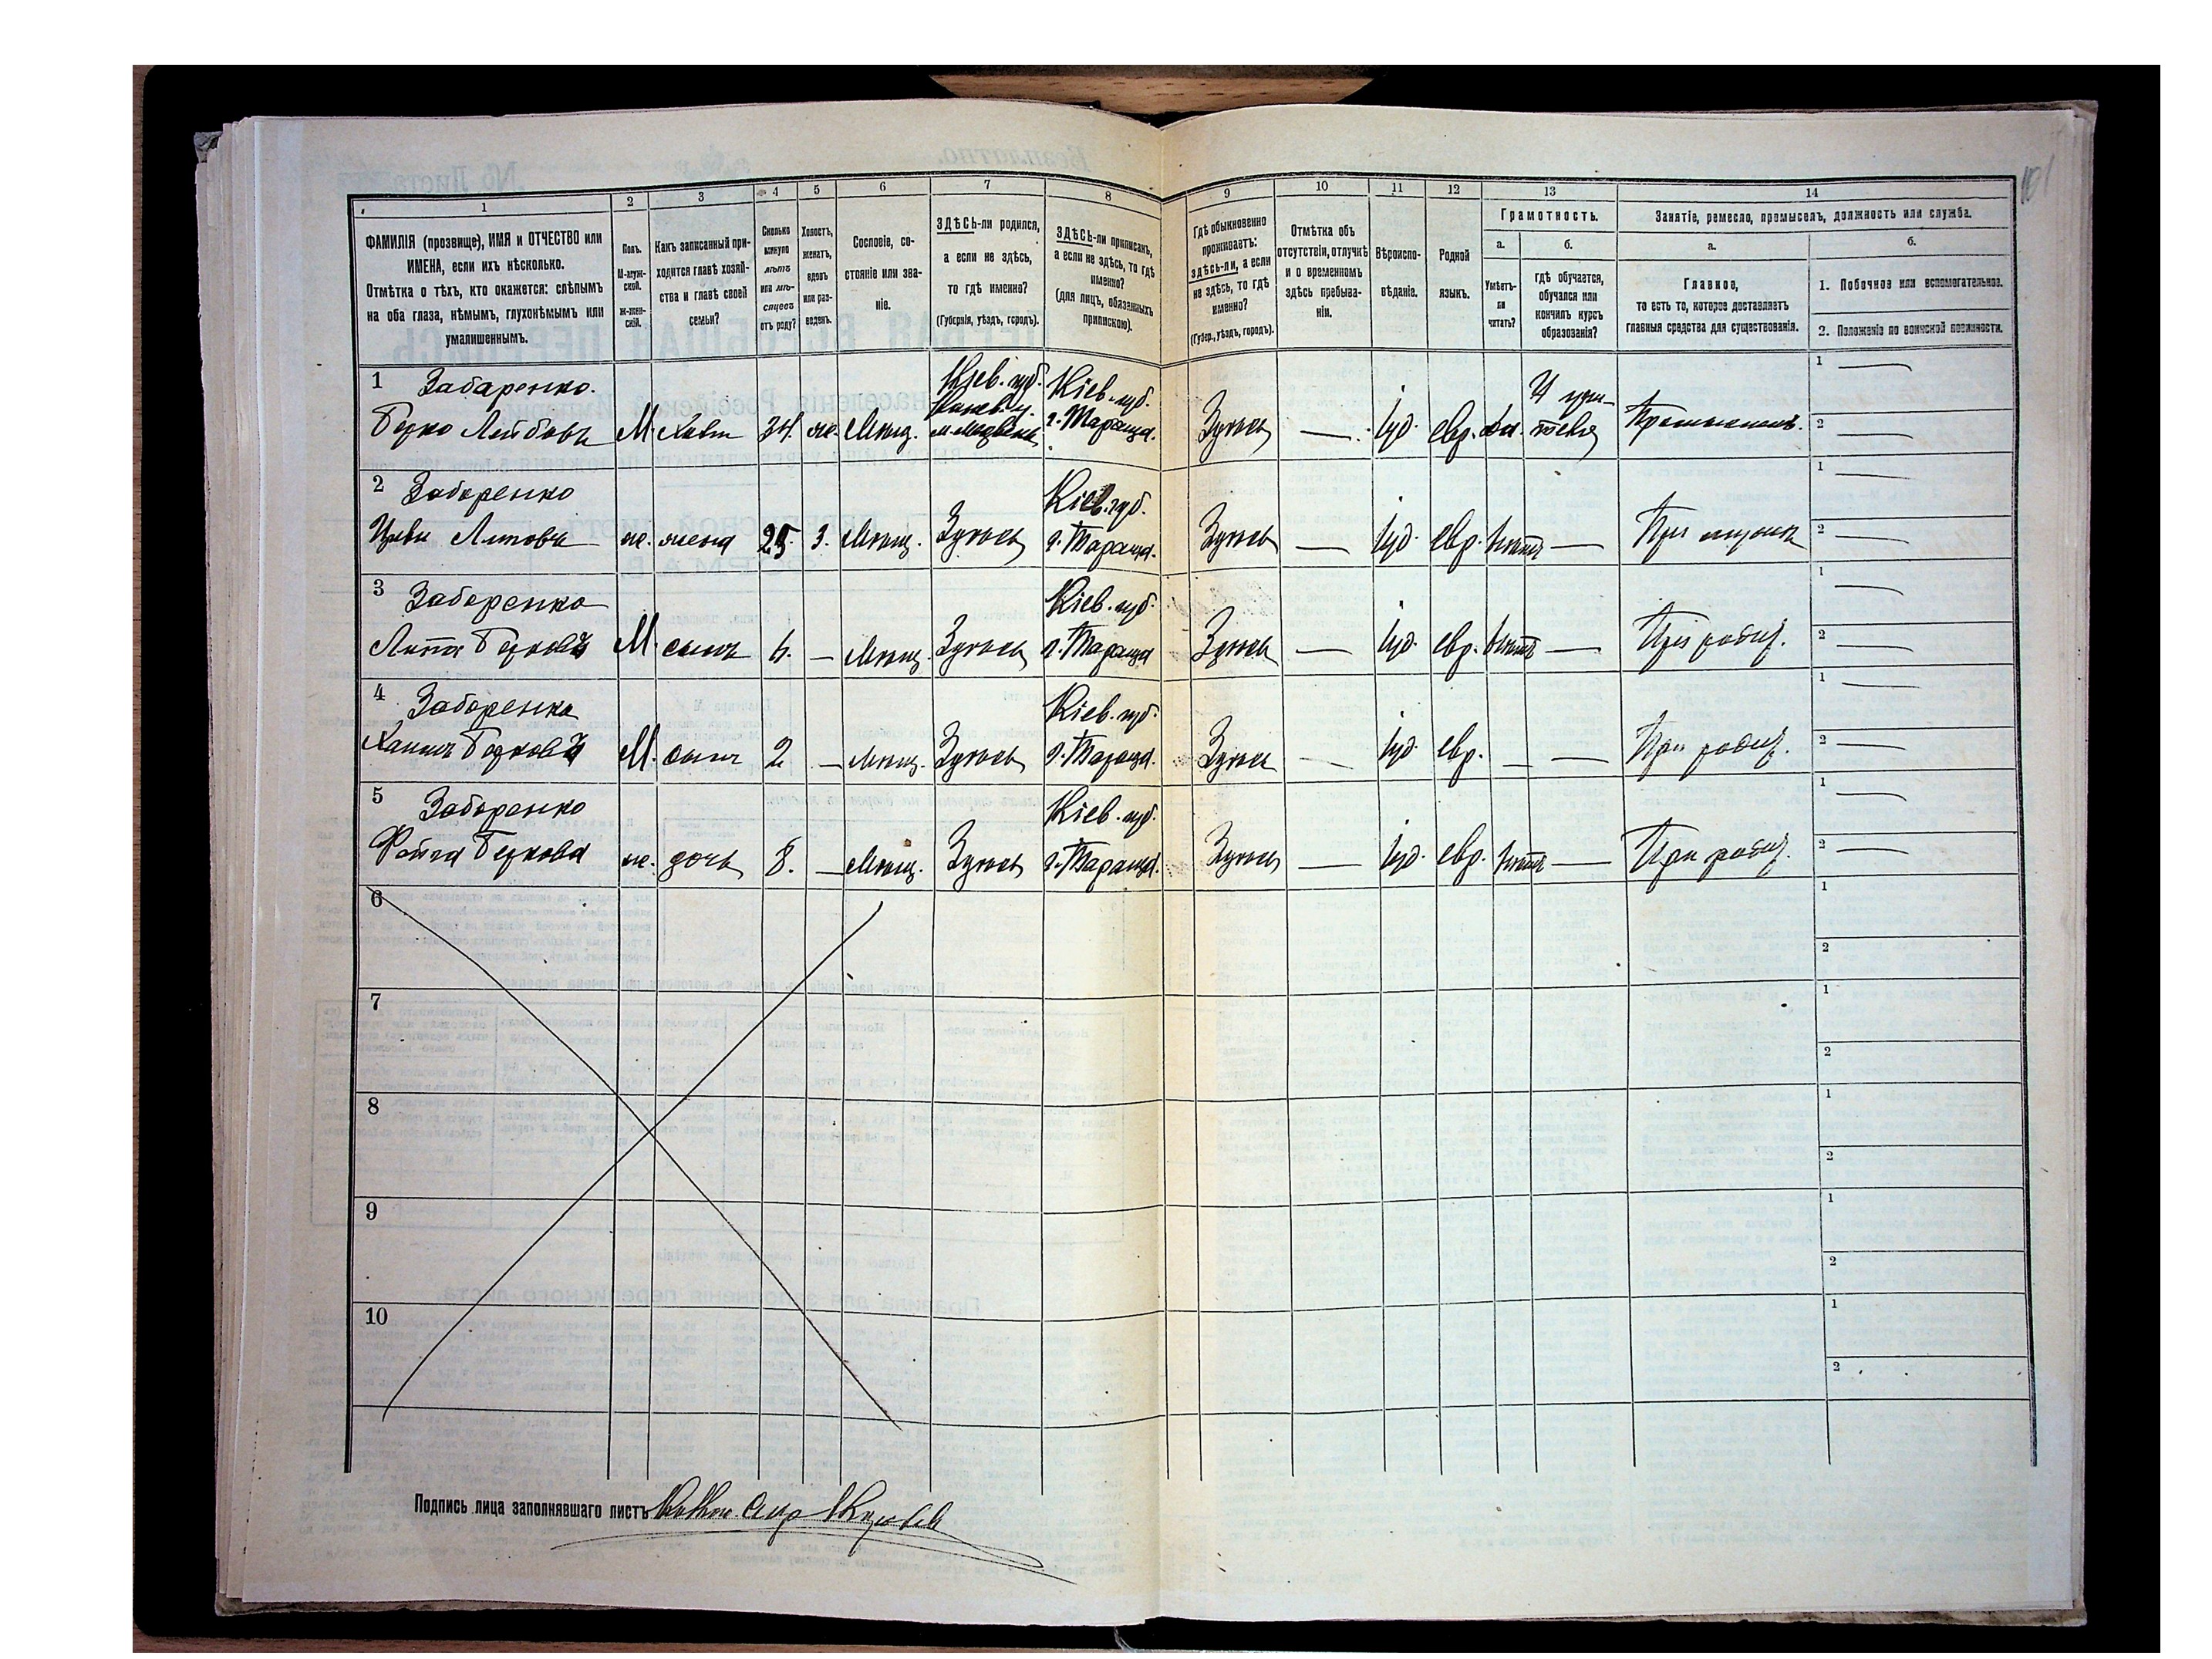 1
2
3
4
5
6
7
8
9
10
11
12
13
14
ФАМИЛІЯ (прозвище), ИМЯ и ОТЧЕСТВО или
ИМЕНА, если ихъ нѣсколько.
Отмѣтка о тѣхъ, кто окажется: слѣпымъ
на оба глаза, нѣмымъ, глухонѣмымъ или
умалишеннымъ.
Полъ.
М-муж-
ской.
ж-жен-
скій.
Какъ записанный при-
ходится главѣ хозяй-
ства и главѣ своей
семьи?
Сколько
минуло
лѣтъ
или мѣ-
сяцевъ
отъ роду?
Холостъ,
женатъ,
вдовъ
или раз-
веденъ.
Сословіе, со-
стояніе или зва-
ніе.
ЗДѢСЬ-ли родился,
а если не здѣсь,
то гдѣ именно?
(Губернія, уѣздъ, городъ).
ЗДѢСЬ-ли приписанъ,
а если не здѣсь, то гдѣ
именно?
(для лицъ, обязанныхъ
припискою).
Гдѣ обыкновенно
проживаетъ:
здѣсь-ли, а если
не здѣсь, то гдѣ
именно?
(Губер., уѣздъ, городъ).
Отмѣтка объ
отсутствіи, отлучкѣ
и о временномъ
здѣсь пребыва-
ніи.
Вѣроиспо-
вѣданіе.
Родной
языкъ.
Грамотность.
а.
б.
Умѣетъ-
ли
читать?
гдѣ обучается,
обучался или
кончилъ курсъ
образованія?
Занятіе, ремесло, промыселъ, должность или служба.
а.
б.
Главное,
то есть то, которое доставляетъ
главныя средства для существованія.
1. Побочное или вспомогательное.
2. Положеніе по воинской повинности.
1 Забаренко.
Берко Лейбовъ М. Хозя. 34. ж. Мѣщ.
Кіев. губ.
Кіев. губ.
г. Тараща.
Здѣсь — Іуд. евр. да.
У учи-
теля
1 —
2 —
2 Забаренко
ж. жена 25. З. Мѣщ. Здѣсь
Кіев. губ.
г. Тараща.
Здѣсь — Іуд. евр. нѣтъ — При мужѣ
1 —
2 —
3 Забаренко
М. сынъ 6. — Мѣщ. Здѣсь
Кіев. губ.
г. Тараща
Здѣсь — Іуд. евр. нѣтъ — При родит.
1 —
2 —
4 Забаренко
М. сынъ 2 — Мѣщ. Здѣсь
Кіев. губ.
г. Тараща.
Здѣсь — Іуд. евр. — — При родит.
1 —
2 —
5 Забаренко
Фейга Беркова ж. дочь 8. — Мѣщ. Здѣсь
Кіев. губ.
г. Тараща.
Здѣсь — Іуд. евр. нѣтъ — При родит.
1 —
2 —
6
1
2
7
1
2
8
1
2
9
1
2
10
1
2
Подпись лица заполнявшаго листъ